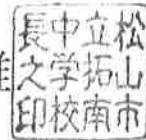 松山市
立拓南
中学校
長之印